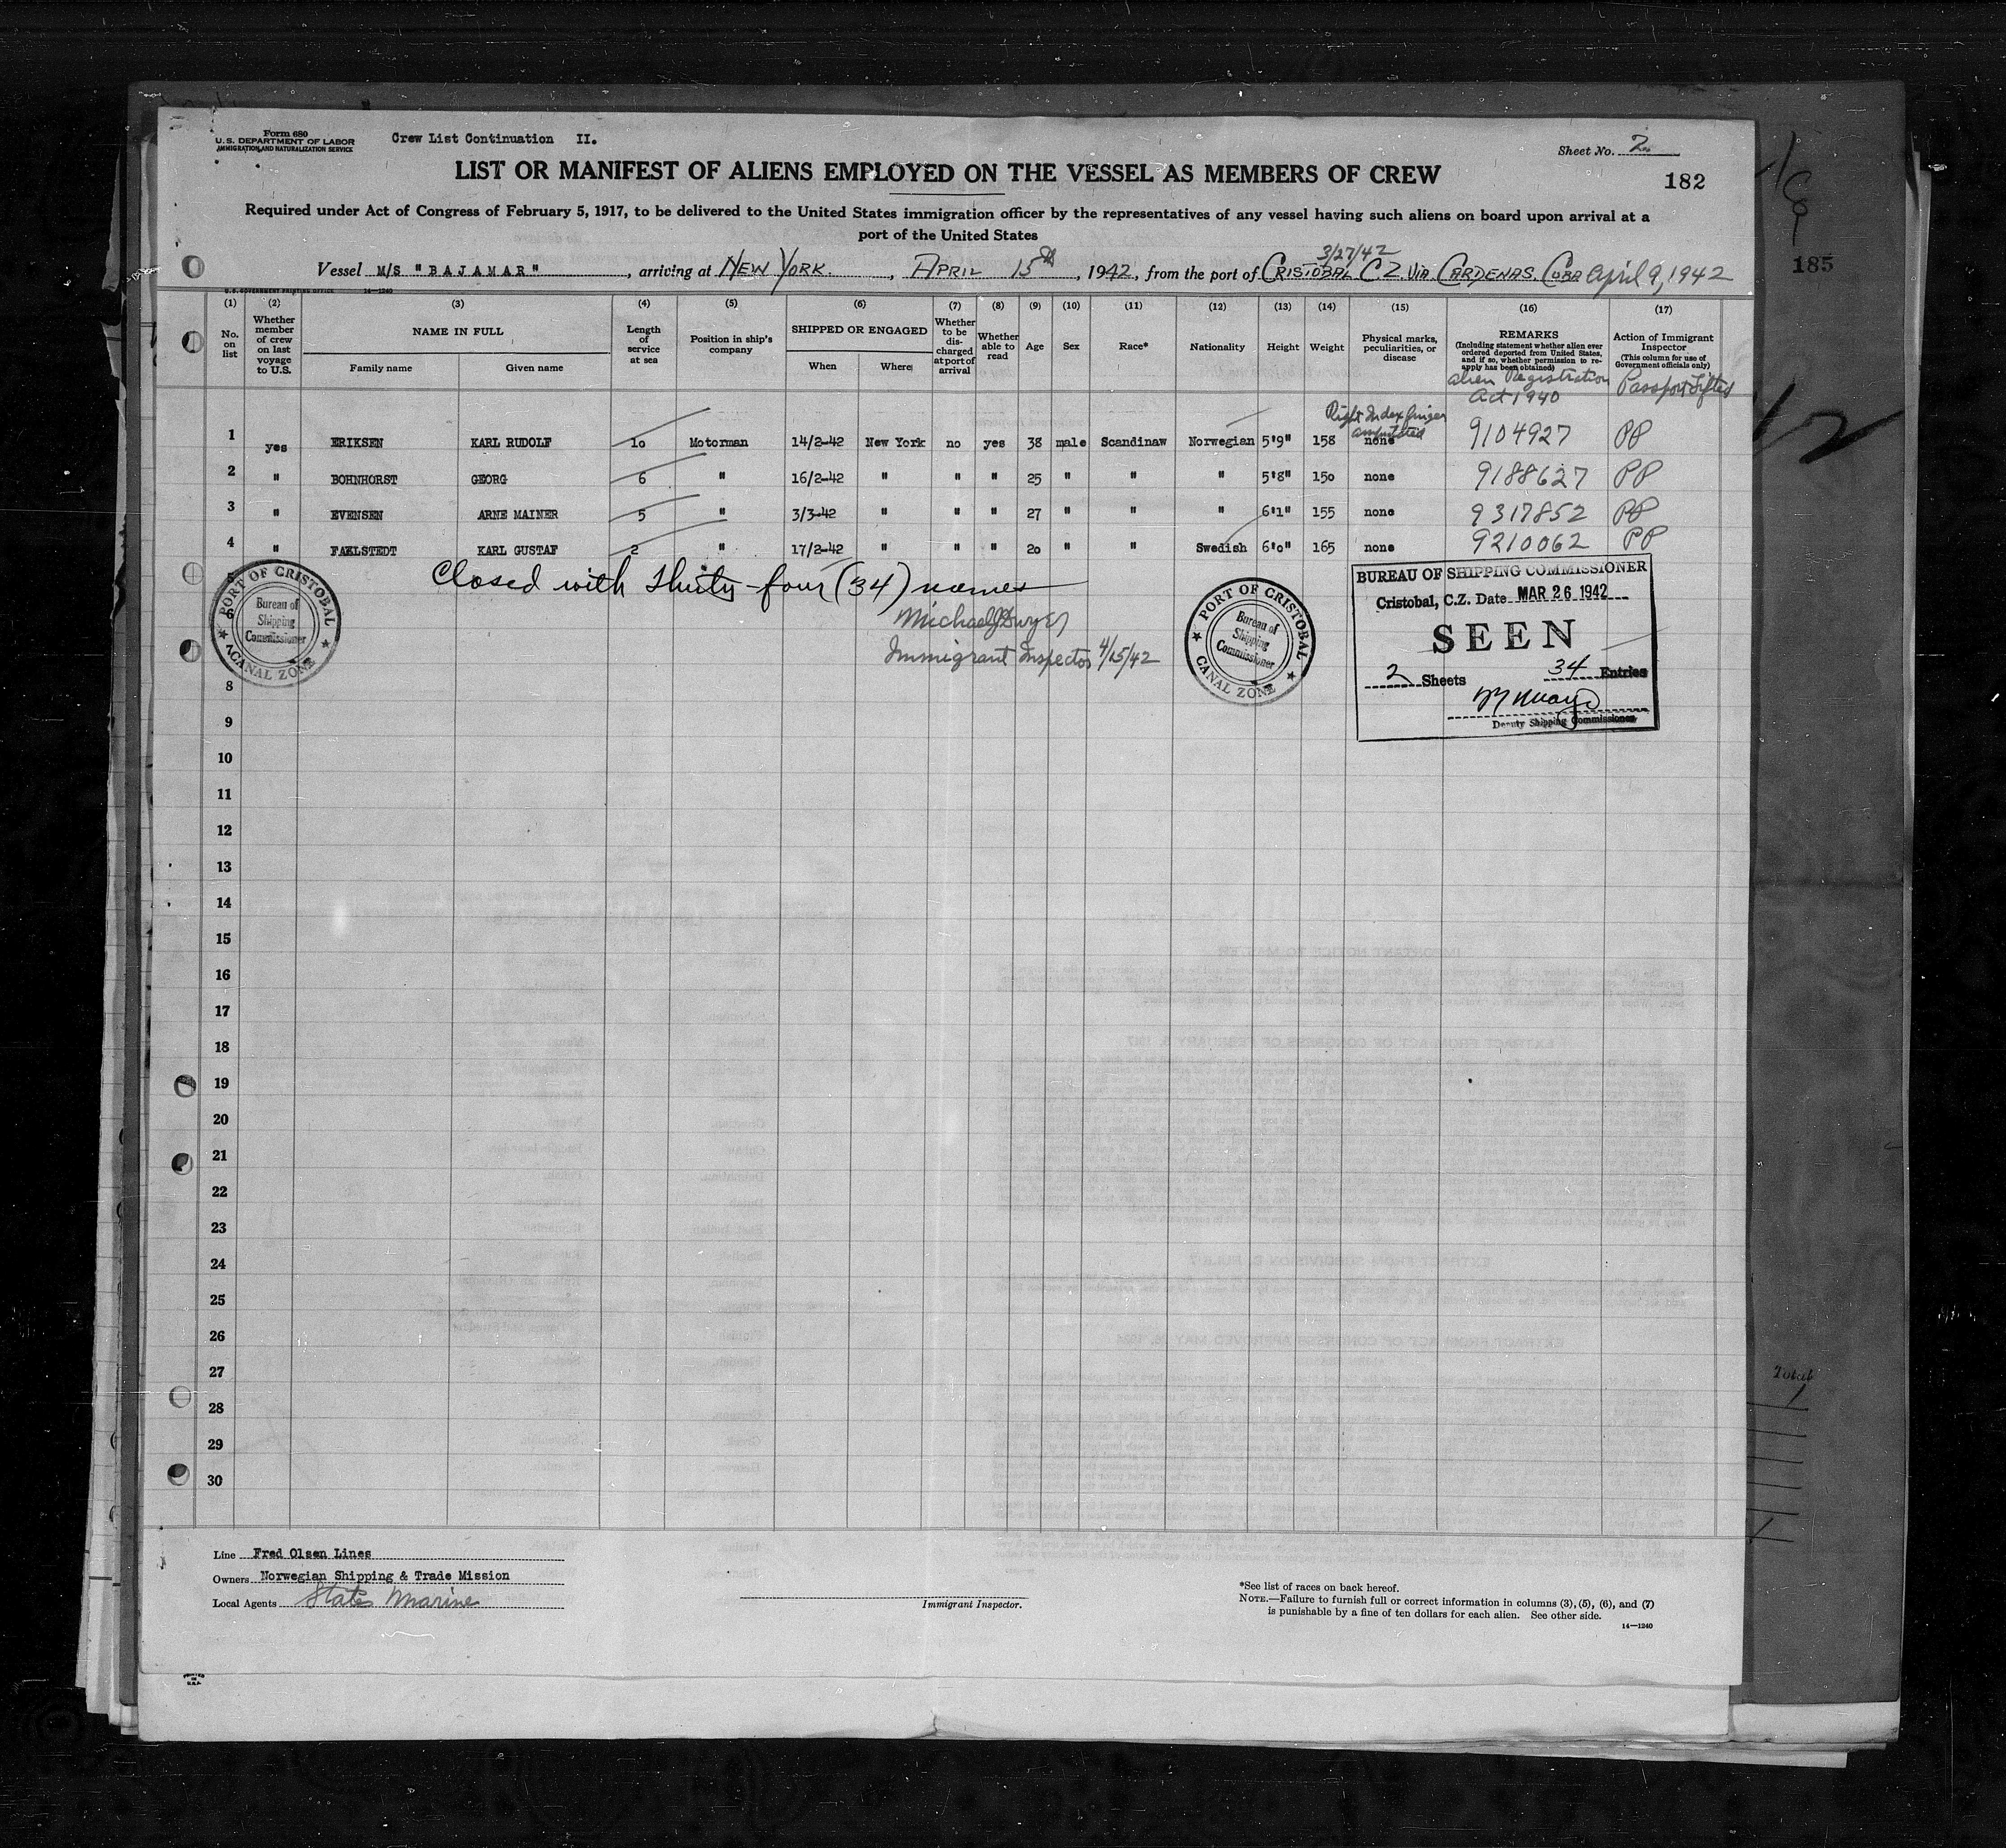 Form 680
U.S. DEPARTMENT OF LABOR
IMMIGRATION AND NATURALIZATION SERVICE
Crew List Continuation II.
Sheet No. 2
LIST OR MANIFEST OF ALIENS EMPLOYED ON THE VESSEL AS MEMBERS OF CREW
182
Required under Act of Congress of February 5, 1917, to be delivered to the United States immigration officer by the representatives of any vessel having such aliens on board upon arrival at a
port of the United States
3/27/42
Vessel M/S "BAJAMAR", arriving at NEW YORK, APRIL 15th, 1942, from the port of CRISTOBAL C.Z. VIA CARDENAS. CUBA April 9, 1942
185
U.S. GOVERNMENT PRINTING OFFICE 14—1240
(1) (2) (3) (4) (5) (6) (7) (8) (9) (10) (11) (12) (13) (14) (15) (16) (17)
No. on list
Whether member of crew on last voyage to U.S.
NAME IN FULL
Family name
Given name
Length of service at sea
Position in ship's company
SHIPPED OR ENGAGED
When
Where
Whether to be discharged at port of arrival
Whether able to read
Age
Sex
Race*
Nationality
Height
Weight
Physical marks, peculiarities, or disease
REMARKS
(Including statement whether alien ever ordered deported from United States, and if so, whether permission to reapply has been obtained)
Action of Immigrant Inspector
(This column for use of Government officials only)
Alien Registration Act 1940
Passport Lifted
Right Index finger amputated
1 yes ERIKSEN KARL RUDOLF 10 Motorman 14/2-42 New York no yes 38 male Scandinaw Norwegian 5'9" 158 none 9104927 PP
2 " BOHNHORST GEORG 6 " 16/2-42 " " " 25 " " " 5'8" 150 none 9188627 PP
3 " EVENSEN ARNE MAINER 5 " 3/3-42 " " " 27 " " " 6'1" 155 none 9317852 PP
4 " FAELSTEDT KARL GUSTAF 2 " 17/2-42 " " " 20 " " Swedish 6'0" 165 none 9210062 PP
Closed with thirty-four (34) names
Michael J Dwyer
Immigrant Inspector 4/15/42
PORT OF CRISTOBAL
Bureau of Shipping Commissioner
CANAL ZONE
PORT OF CRISTOBAL
Bureau of Shipping Commissioner
CANAL ZONE
BUREAU OF SHIPPING COMMISSIONER
Cristobal, C.Z. Date MAR 26 1942
SEEN
2 Sheets 34 Entries
Deputy Shipping Commissioner
6
8
9
10
11
12
13
14
15
16
17
18
19
20
21
22
23
24
25
26
27
28
29
30
Total
Line Fred Olsen Lines
Owners Norwegian Shipping & Trade Mission
Local Agents States Marine
Immigrant Inspector.
*See list of races on back hereof.
NOTE.—Failure to furnish full or correct information in columns (3), (5), (6), and (7)
is punishable by a fine of ten dollars for each alien. See other side.
14—1240
PRINTED IN U.S.A.